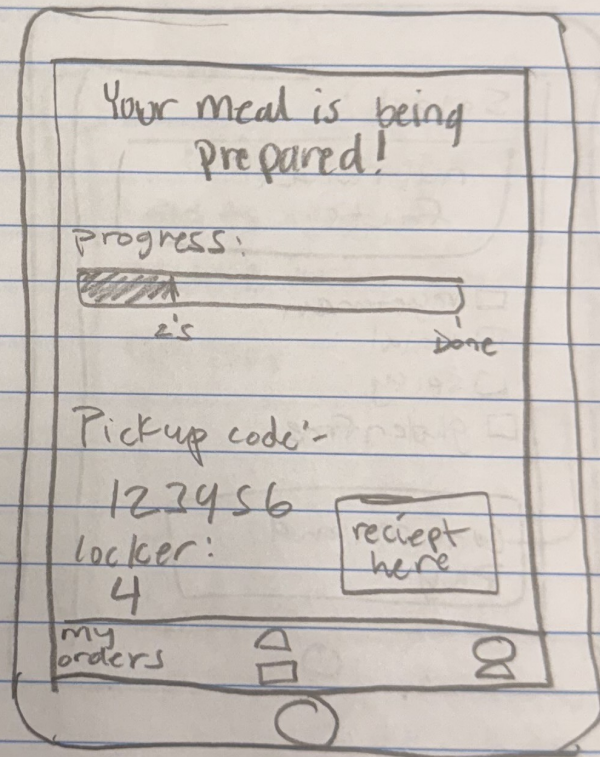 Your meal is being
prepared!
progress:
2's
Done
Pickup code:-
123456
locker:
4
reciept
here
my
orders